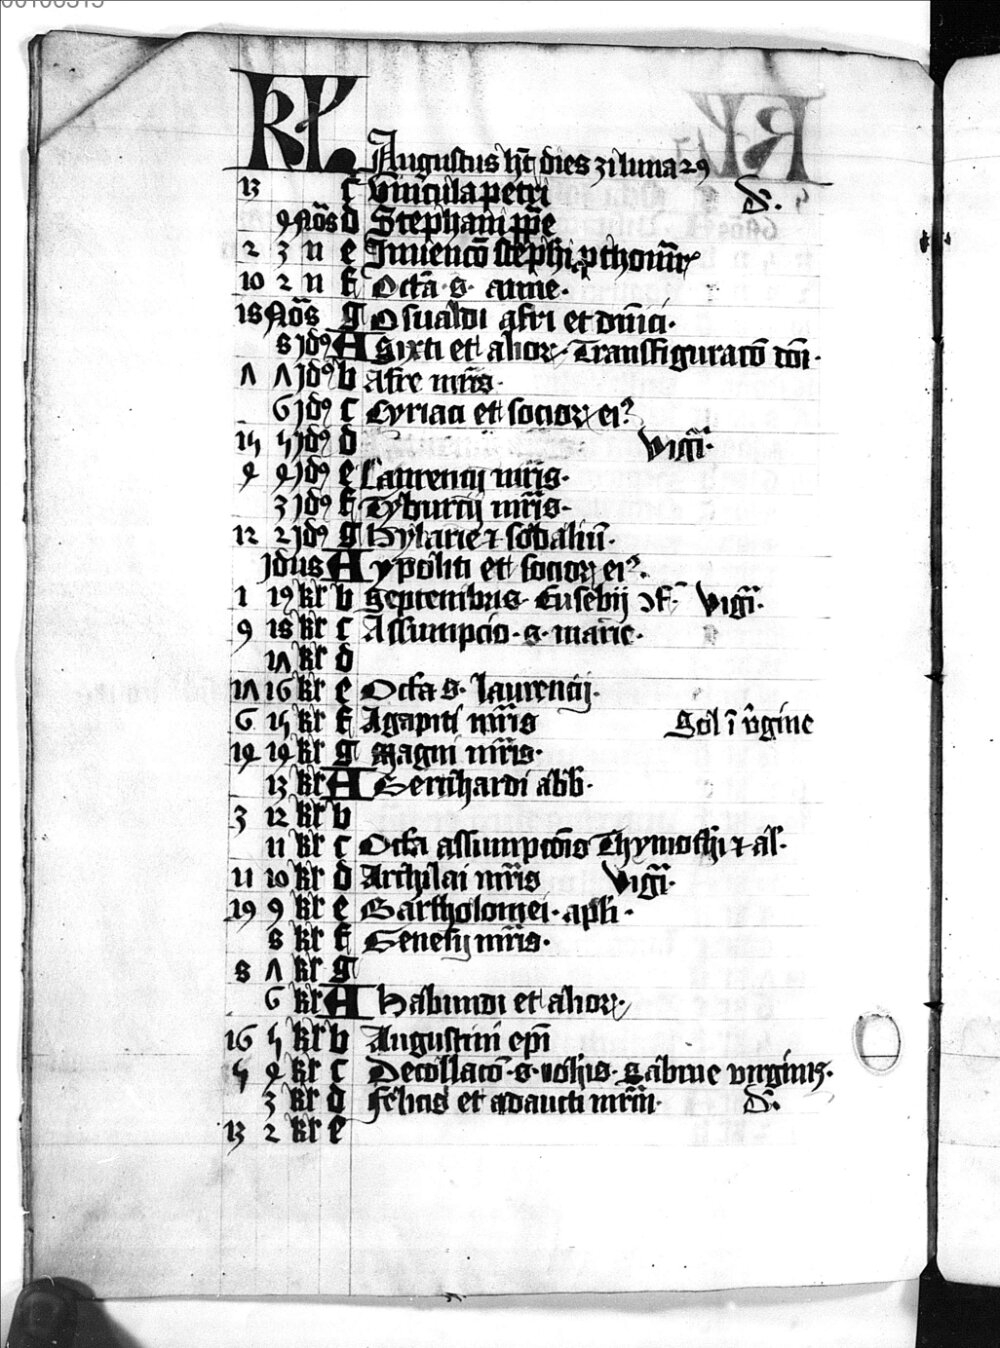 KL Augustus ht dies 31 luna 29
13 c Vincula petri D.
4 Nos d Stephani ppe
2 3 n e Invenco stephi pthomr
10 2 n f Octa s. anne.
18 Nos g Osualdi afri et dnici.
8 jd9 A Sixti et alior. Transfiguraco dni.
7 7 jd9 b Afre mris.
6 jd9 c Cyriaci et socior ei9
15 5 jd9 d Vigi.
4 4 jd9 e Laurencij mris.
3 jd9 f Tyburcij mris.
12 2 jd9 g Hylarie et sodaliu.
jdus A ypoliti et socior ei9.
1 19 kl b Septembris. Eusebij cf. Vigi.
9 18 kl c Assumpcio. s. marie.
17 kl d
17 16 kl e Octa s. laurencij.
6 15 kl f Agapiti mris Sol i vgine
14 14 kl g Magni mris.
13 kl A Bernhardi abb.
3 12 kl b
11 kl c Octa assumpcois Thymothi et al.
11 10 kl d Archilai mris Vigi.
19 9 kl e Bartholomei. apli.
8 kl f Genesij mris.
8 7 kl g
6 kl A Habundi et alior.
16 5 kl b Augustini epi
5 4 kl c Decollaco. s. iohis. Sabine virginis.
3 kl d felicis et adaucti mrm. D.
13 2 kl e